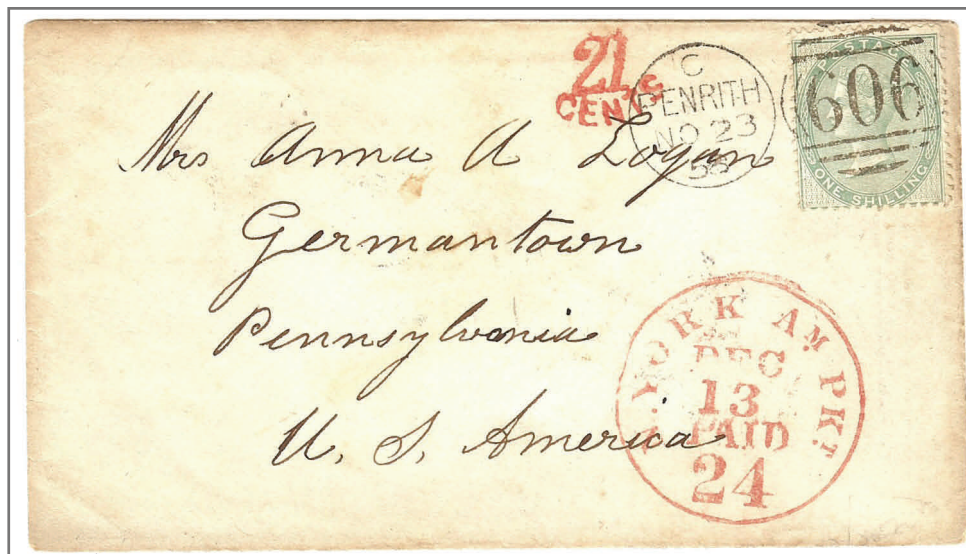 21
CENTS
C
PENRITH
NO 23
POSTAGE
606
ONE SHILLING
Mrs Anna A Logan
Germantown
Pennsylvania
U. S. America
N. YORK AM PKT
DEC
13
PAID
24